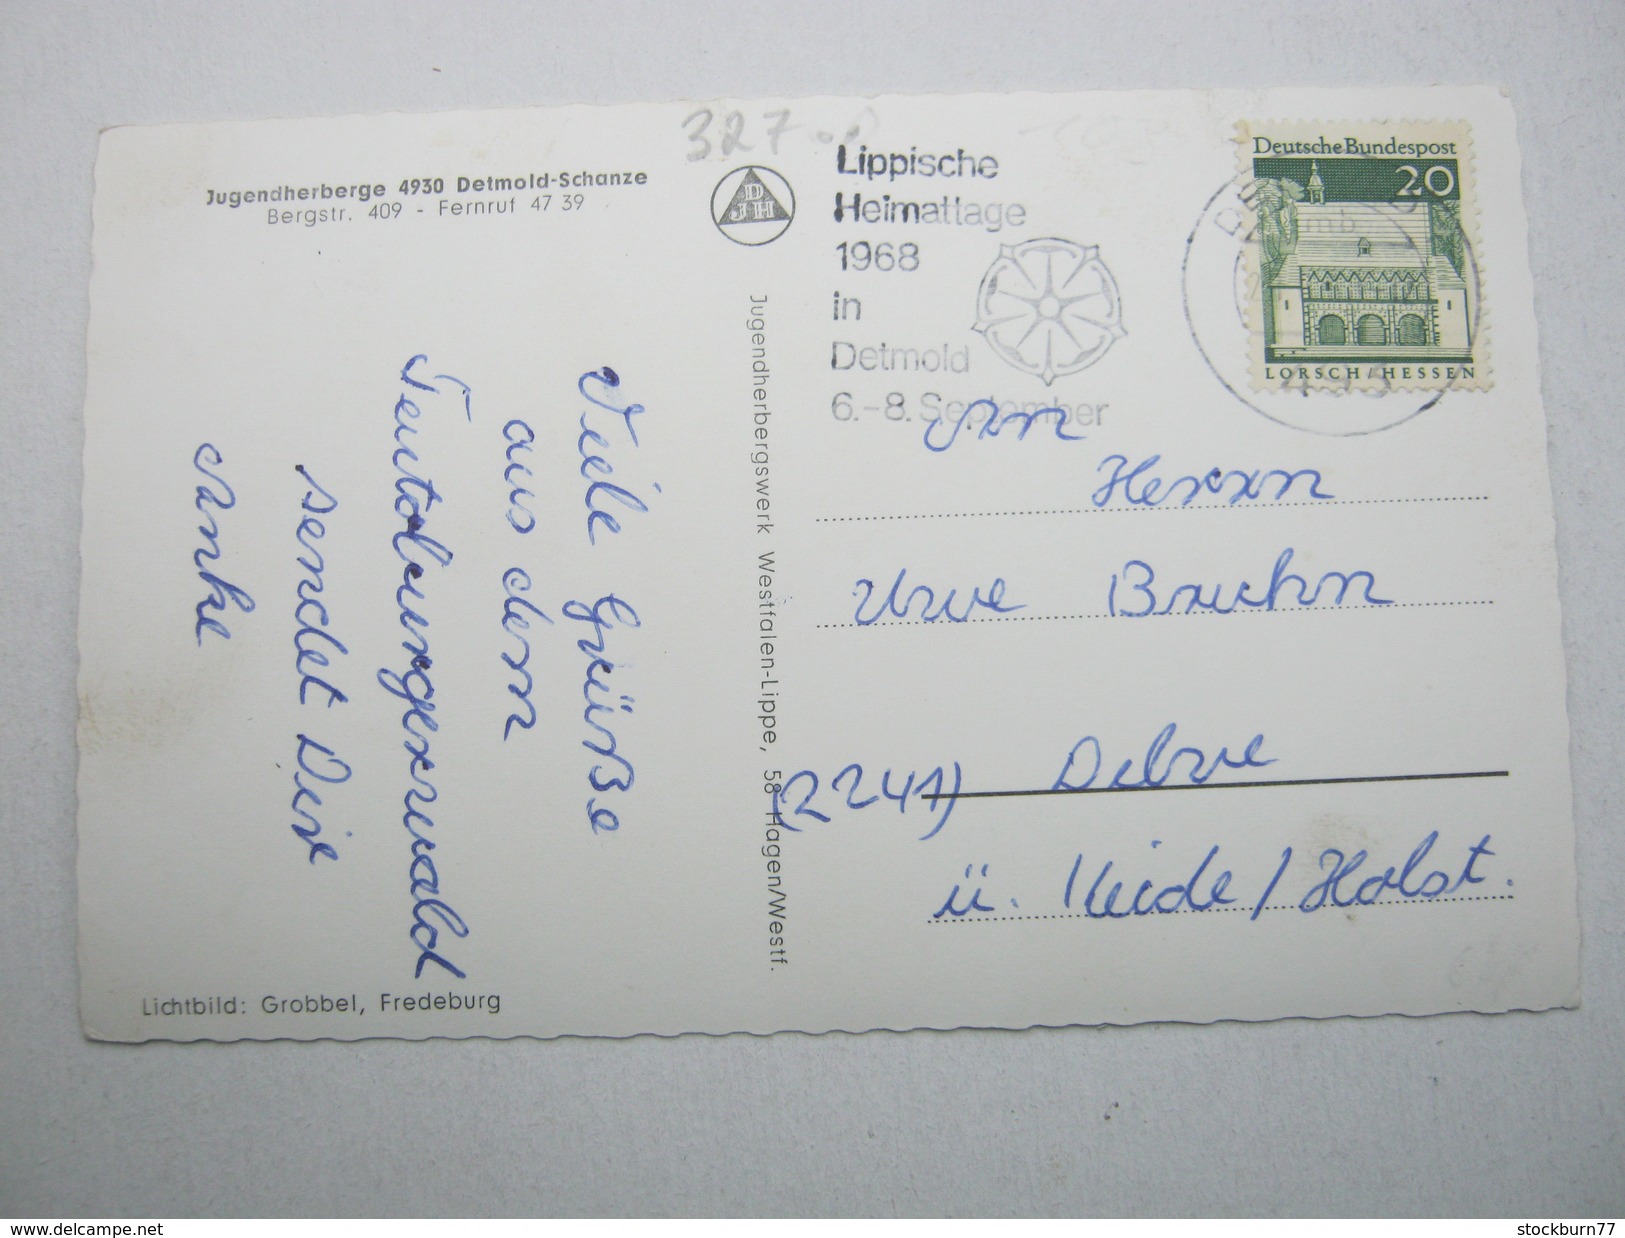 327
Jugendherberge 4930 Detmold-Schanze
Bergstr. 409 - Fernruf 47 39
DJH
Viele Grüße
aus dem
Teutoburgerwald
sendet Dir
Anke
Lichtbild: Grobbel, Fredeburg
Jugendherbergswerk Westfalen-Lippe, 58 Hagen/Westf.
Lippische
Heimattage
1968
in
Detmold
6.-8. September
Deutsche Bundespost
20
LORSCH/HESSEN
493
An
Herrn
Uwe Bruhn
(2241) Delve
ü. Heide/Holst.
www.delcampe.net
stockburn77